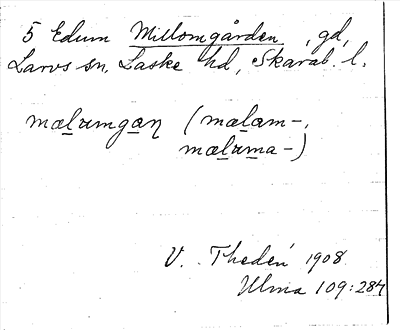 5 Edum Millomgården, gd,
Larvs sn, Laske hd, Skarab. l.
mælamgaɳ (mælam-,
mælama-)
V. Thedén 1908
Ulma 109:284